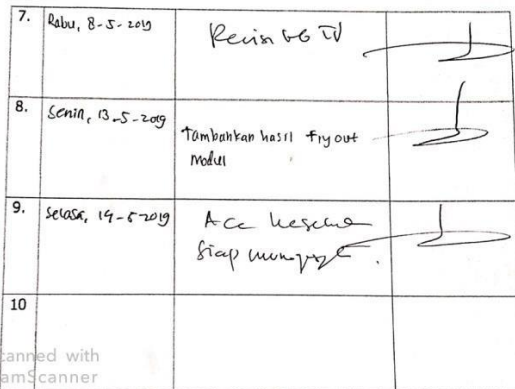 7.
Rabu, 8-5-2019
Revisi bb IV
8.
Senin, 13-5-2019
Tambahkan hasil tryout
modul
9.
Selasa, 14-5-2019
Acc
Siap
10
canned with
amScanner